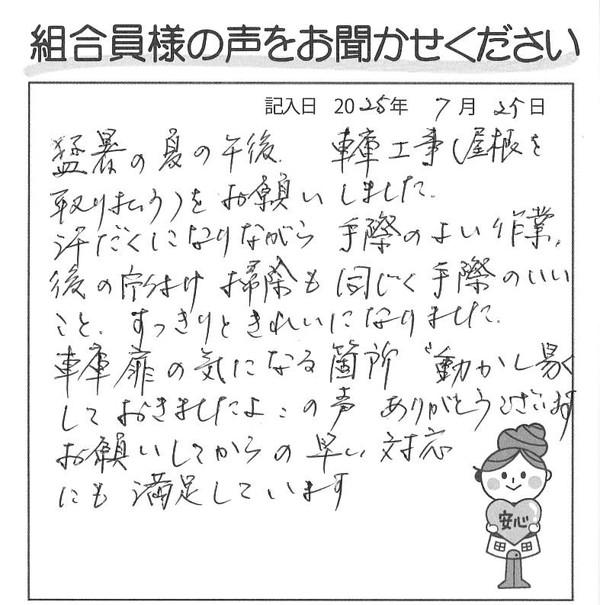 組合員様の声をお聞かせください
記入日 2025年 7月 25日
猛暑の夏の午後、 車庫工事(屋根を
取り払う)をお願いしました。
汗だくになりながら 手際のよい作業、
後の片付け 掃除も同じく手際のいい
こと、すっきりときれいになりました。
車庫扉の気になる箇所 〝動かし易く
しておきましたよ〟の声 ありがとうございます
お願いしてからの早い対応
にも満足しています
安心